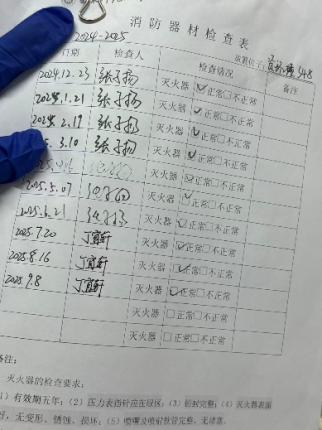 消防器材检查表
2024-2025
548
日期 检查人 检查情况 备注
2024.12.23 张子扬 灭火器 ☑正常☐不正常
2025.1.21 张子扬 灭火器 ☑正常☐不正常
2025.2.17 张子扬 灭火器 ☑正常☐不正常
3.10 张子扬 灭火器 ☑正常☐不正常
灭火器 ☑正常☐不正常
2025.5.07 灭火器 ☑正常☐不正常
2025.6.21 灭火器 ☑正常☐不正常
2025.7.20 丁宜轩 灭火器 ☑正常☐不正常
2025.8.16 丁宜轩 灭火器 ☑正常☐不正常
2025.9.8 丁宜轩 灭火器 ☑正常☐不正常
灭火器 ☐正常☐不正常
灭火器 ☐正常☐不正常
备注:
灭火器的检查要求:
1)有效期五年;(2)压力表指针应在绿区;(3)铅封完整;(4)灭火器表面
好,无变形、锈蚀、损坏;(5)喷嘴及喷射软管完整,无堵塞。